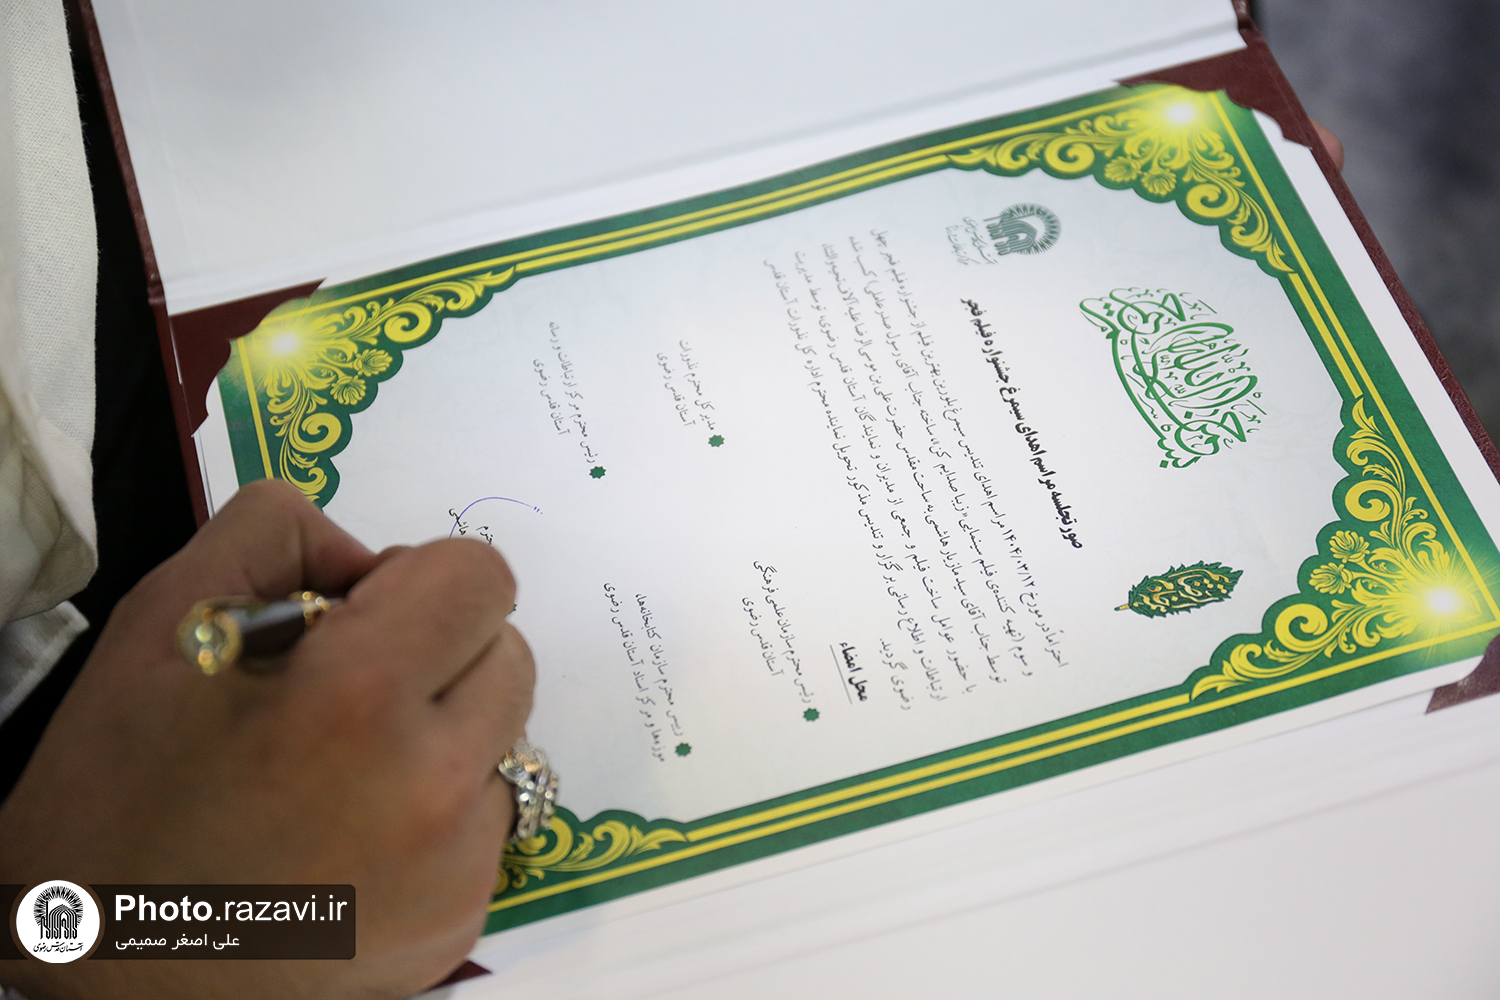 بسم الله الرحمن الرحیم
صورتجلسه مراسم اهدای سیمرغ جشنواره فیلم فجر
احتراماً در مورخ ۱۴۰۴/۰۳/۱۲ مراسم اهدای تندیس سیمرغ بلورین بهترین فیلم از جشنواره فیلم فجر چهل
و سوم (تهیه کننده‌ی فیلم سینمایی «زیبا صدایم کن»، ساخته جناب آقای رسول صدرعاملی) کسب شده
توسط جناب آقای سید مازیار هاشمی به ساحت مقدس حضرت علی بن موسی الرضا علیه آلاف تحیه و الثناء
با حضور عوامل ساخت فیلم و جمعی از مدیران و نمایندگان آستان قدس رضوی، توسط مدیریت
ارتباطات و اطلاع رسانی برگزار و تندیس مذکور تحویل نماینده محترم اداره کل نذورات آستان قدس
رضوی گردید.
محل امضاء
رئیس محترم سازمان علمی فرهنگی
آستان قدس رضوی
مدیر کل محترم نذورات
آستان قدس رضوی
رییس محترم سازمان کتابخانه‌ها،
موزه‌ها و مرکز اسناد آستان قدس رضوی
رئیس محترم مرکز ارتباطات و رسانه
آستان قدس رضوی
محترم
هاشمی
Photo.razavi.ir
علی اصغر صمیمی
آستان قدس رضوی